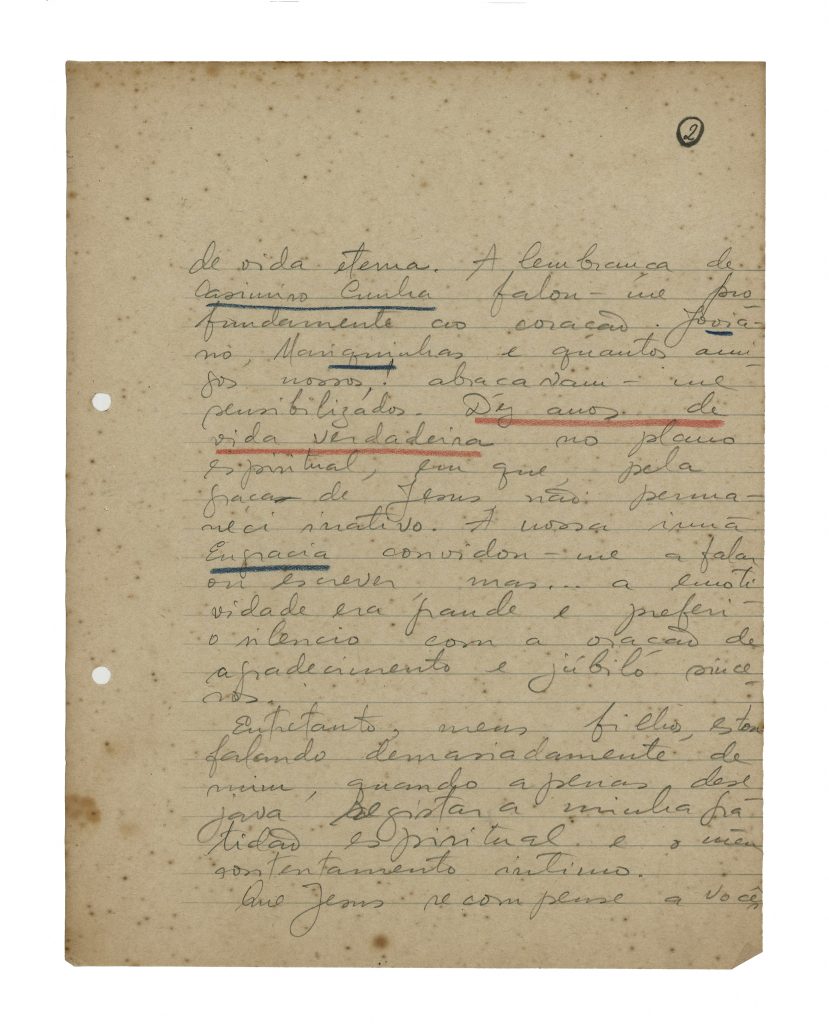 2
de vida eterna. A lembrança de
Casimiro Cunha falou-me pro
fundamente ao coração. Jovia-
no, Mariquinhas e quantos ami-
gos nossos,! abraçavam-me
sensibilizados. Dez anos de
vida verdadeira no plano
espiritual, em que, pela
graça de Jesus não perma-
neci inativo. A nossa irmã
Engracia convidou-me a falar
ou escrever mas... a emoti
vidade era grande e preferi
o silencio com a oração de
agradecimento e júbilo since-
ros.
Entretanto, meus filho, estou
falando demasiadamente de
mim, quando apenas dese
java registar a minha gra-
tidão espiritual e o meu
contentamento intimo.
Que Jesus recompense a vocês